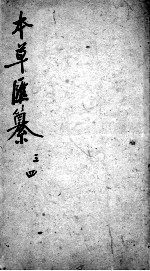 本草匯纂
三四